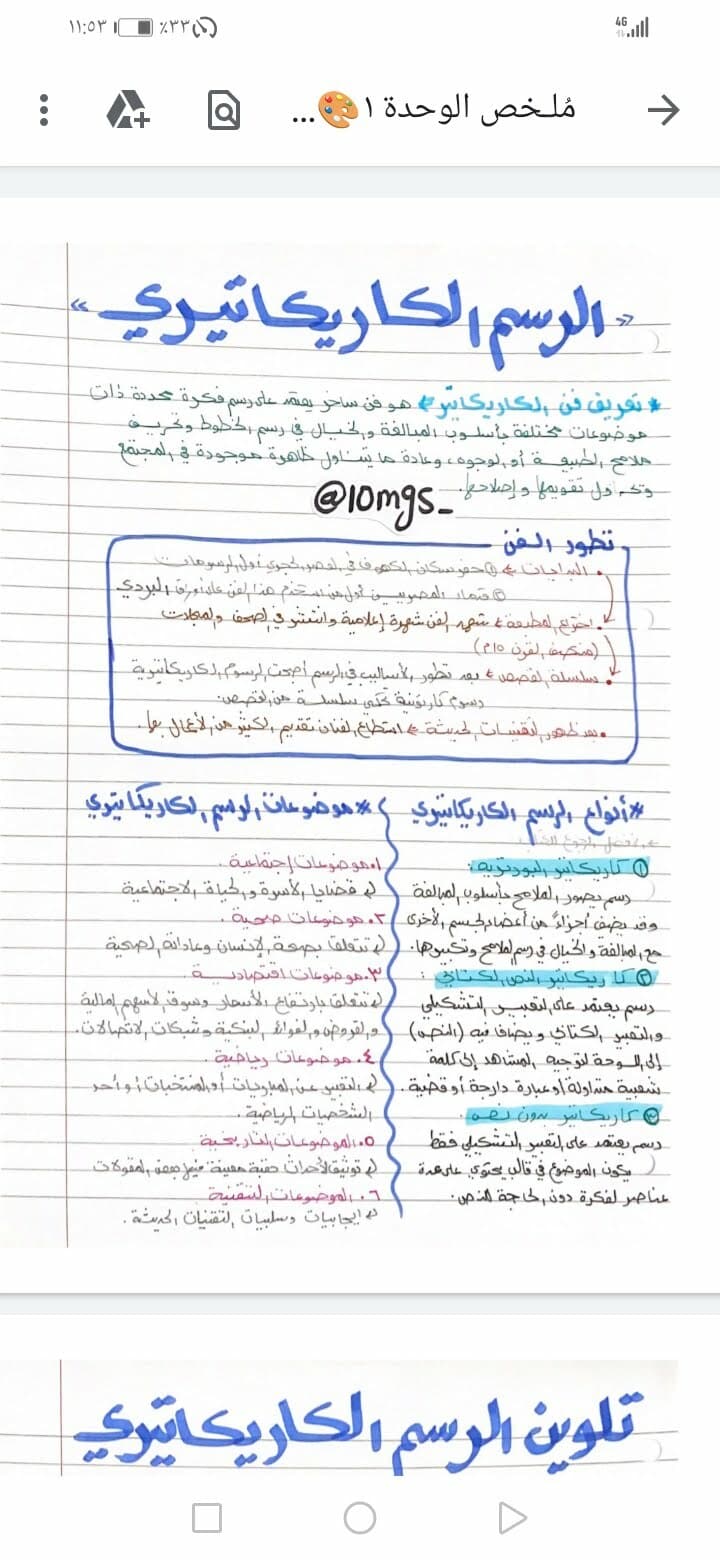 ١١:٥٣ ٪٣٣ 4G
مُلـخص الوحدة ١🎨...
« الرسم الكاريكاتيري »
* تعريف فن الكاريكاتير ← هو فن ساخر يعتمد على رسم فكرة محددة ذات
موضوعات مختلفة بأسلوب المبالغة والخيال في رسم الخطوط وتحريف
ملامح الطبيعة أو الوجوه، وعادة ما يتناول ظاهرة موجودة في المجتمع
وتحاول تقويمها وإصلاحها.
@10mgs_
تطور الفن
• البدايات ← ① حفر سكان الكهوف في العصر الحجري أول الرسومات
② قدماء المصريين أول من استخدم هذا الفن على أوراق البردي
• اختراع المطبعة ← شهد الفن شهرة إعلامية وانتشر في الصحف والمجلات
(منتصف القرن ١٥م)
• سلسلة القصص ← بعد تطور الأساليب في الرسم أصبحت الرسوم الكاريكاتيرية
رسوم كارتونية تحكي سلسلة من القصص.
• بعد ظهور التقنيات الحديثة ← استطاع الفنان تقديم الكثير من الأعمال بها.
* أنواع الرسم الكاريكاتيري
① كاريكاتير البورتريه:
رسم يصور الملامح بأسلوب المبالغة
وقد يضيف أجزاءً من أعضاء الجسم الأخرى
مع المبالغة والخيال في رسم الملامح وتكبيرها.
② كاريكاتير النص الكتابي :
رسم يعتمد على التعبير التشكيلي
والتعبير الكتابي ويضاف فيه (النص)
إلى اللوحة لتوجيه المشاهد إلى كلمة
شعبية متداولة أو عبارة دارجة أو قضية.
③ كاريكاتير بدون نص:
رسم يعتمد على التعبير التشكيلي فقط
يكون الموضوع في قالب يحتوي على عدة
عناصر لفكرة دون الحاجة للنص.
* موضوعات الرسم الكاريكاتيري
١. موضوعات إجتماعية.
قضايا الأسرة والحياة الاجتماعية
٢. موضوعات صحية.
تتعلق بصحة الإنسان وعاداته الصحية
٣. موضوعات اقتصادية.
تتعلق بارتفاع الأسعار وسوق الأسهم المالية
والقروض والفوائد البنكية وشبكات الاتصالات.
٤. موضوعات رياضية.
التعبير عن المباريات أو المنتخبات أو أحد
الشخصيات الرياضية.
٥. الموضوعات التاريخية
توثيق لأحداث حقبة معينة المقولات
٦. الموضوعات التقنية
ايجابيات وسلبيات التقنيات الحديثة.
تلوين الرسم الكاريكاتيري